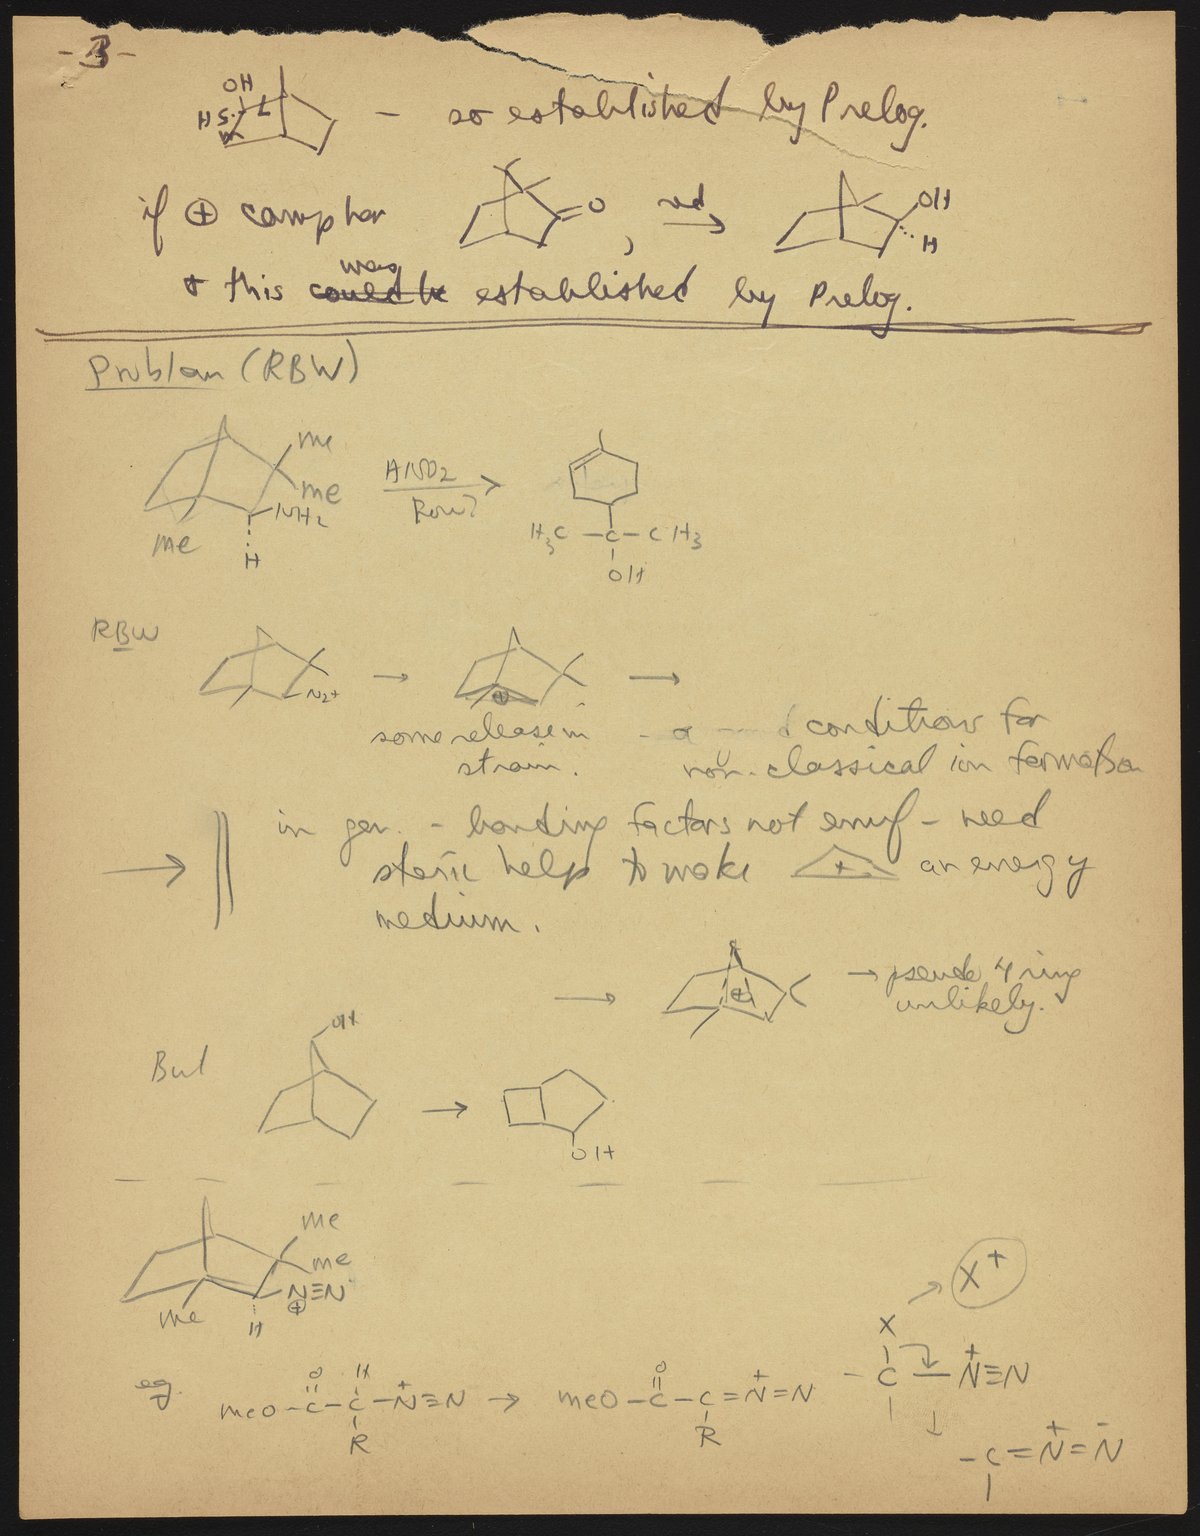 -3-
OH
H S L
M
- so established by Prelog.
if ⊕ camphor , =O red → OH
H
& this was established by Prelog.
Problem (RBW)
me
me
NH2
me
H
HNO2
How?
H3C - C - CH3
OH
RBW
N2+
→ ⊕ →
some release in
strain.
conditions for
non-classical ion formation
in gen. - bonding factors not enuf - need
steric help to make + an energy
medium.
→ ⊕ → pseudo 4 ring
unlikely.
But
OH
→
OH
me
me
N≡N
⊕
me
H
X+
X
- C - N+≡N
eg.
O H
meO - C - C - N+≡N → meO - C - C = N+ = N
R
O
R
- C = N+ = N-